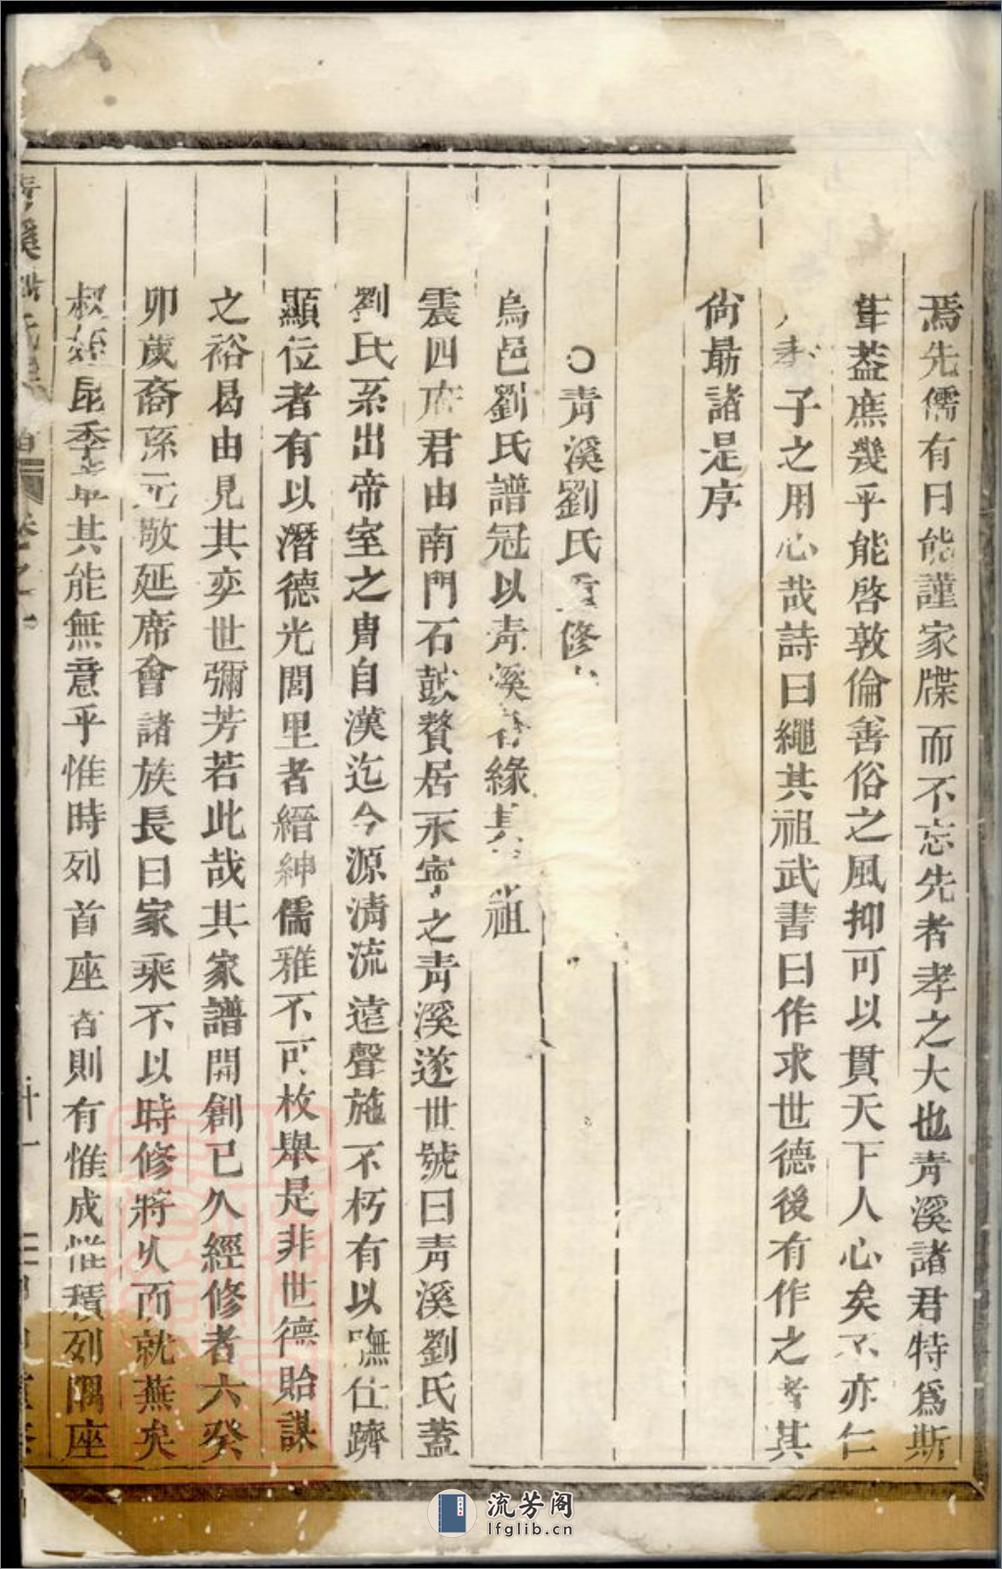 焉先儒有曰能謹家牒而不忘先者孝之大也青溪諸君特爲斯
舉葢庶幾乎能啓敦倫善俗之風抑可以貫天下人心矣不亦仁
人孝子之用心哉詩曰繩其祖武書曰作求世德後有作之者其
尙最諸是序
○青溪劉氏重修
烏邑劉氏譜冠以青溪者緣其 祖
震四府君由南門石鼓贅居永寧之青溪遂世號曰青溪劉氏蓋
劉氏系出帝室之冑自漢迄今源清流遠聲施不朽有以膴仕躋
顯位者有以潛德光閭里者縉紳儒雅不可枚舉是非世德貽謀
之裕曷由見其奕世彌芳若此哉其家譜開創已久經修者六癸
卯歲裔孫元敬延席會諸族長曰家乘不以時修將乆而就蕪矣
叔姪昆季輩其能無意乎惟時列首座者則有惟成惟積列隅座
青溪劉氏 首 卷之一 十一
流芳阁
lfglib.cn